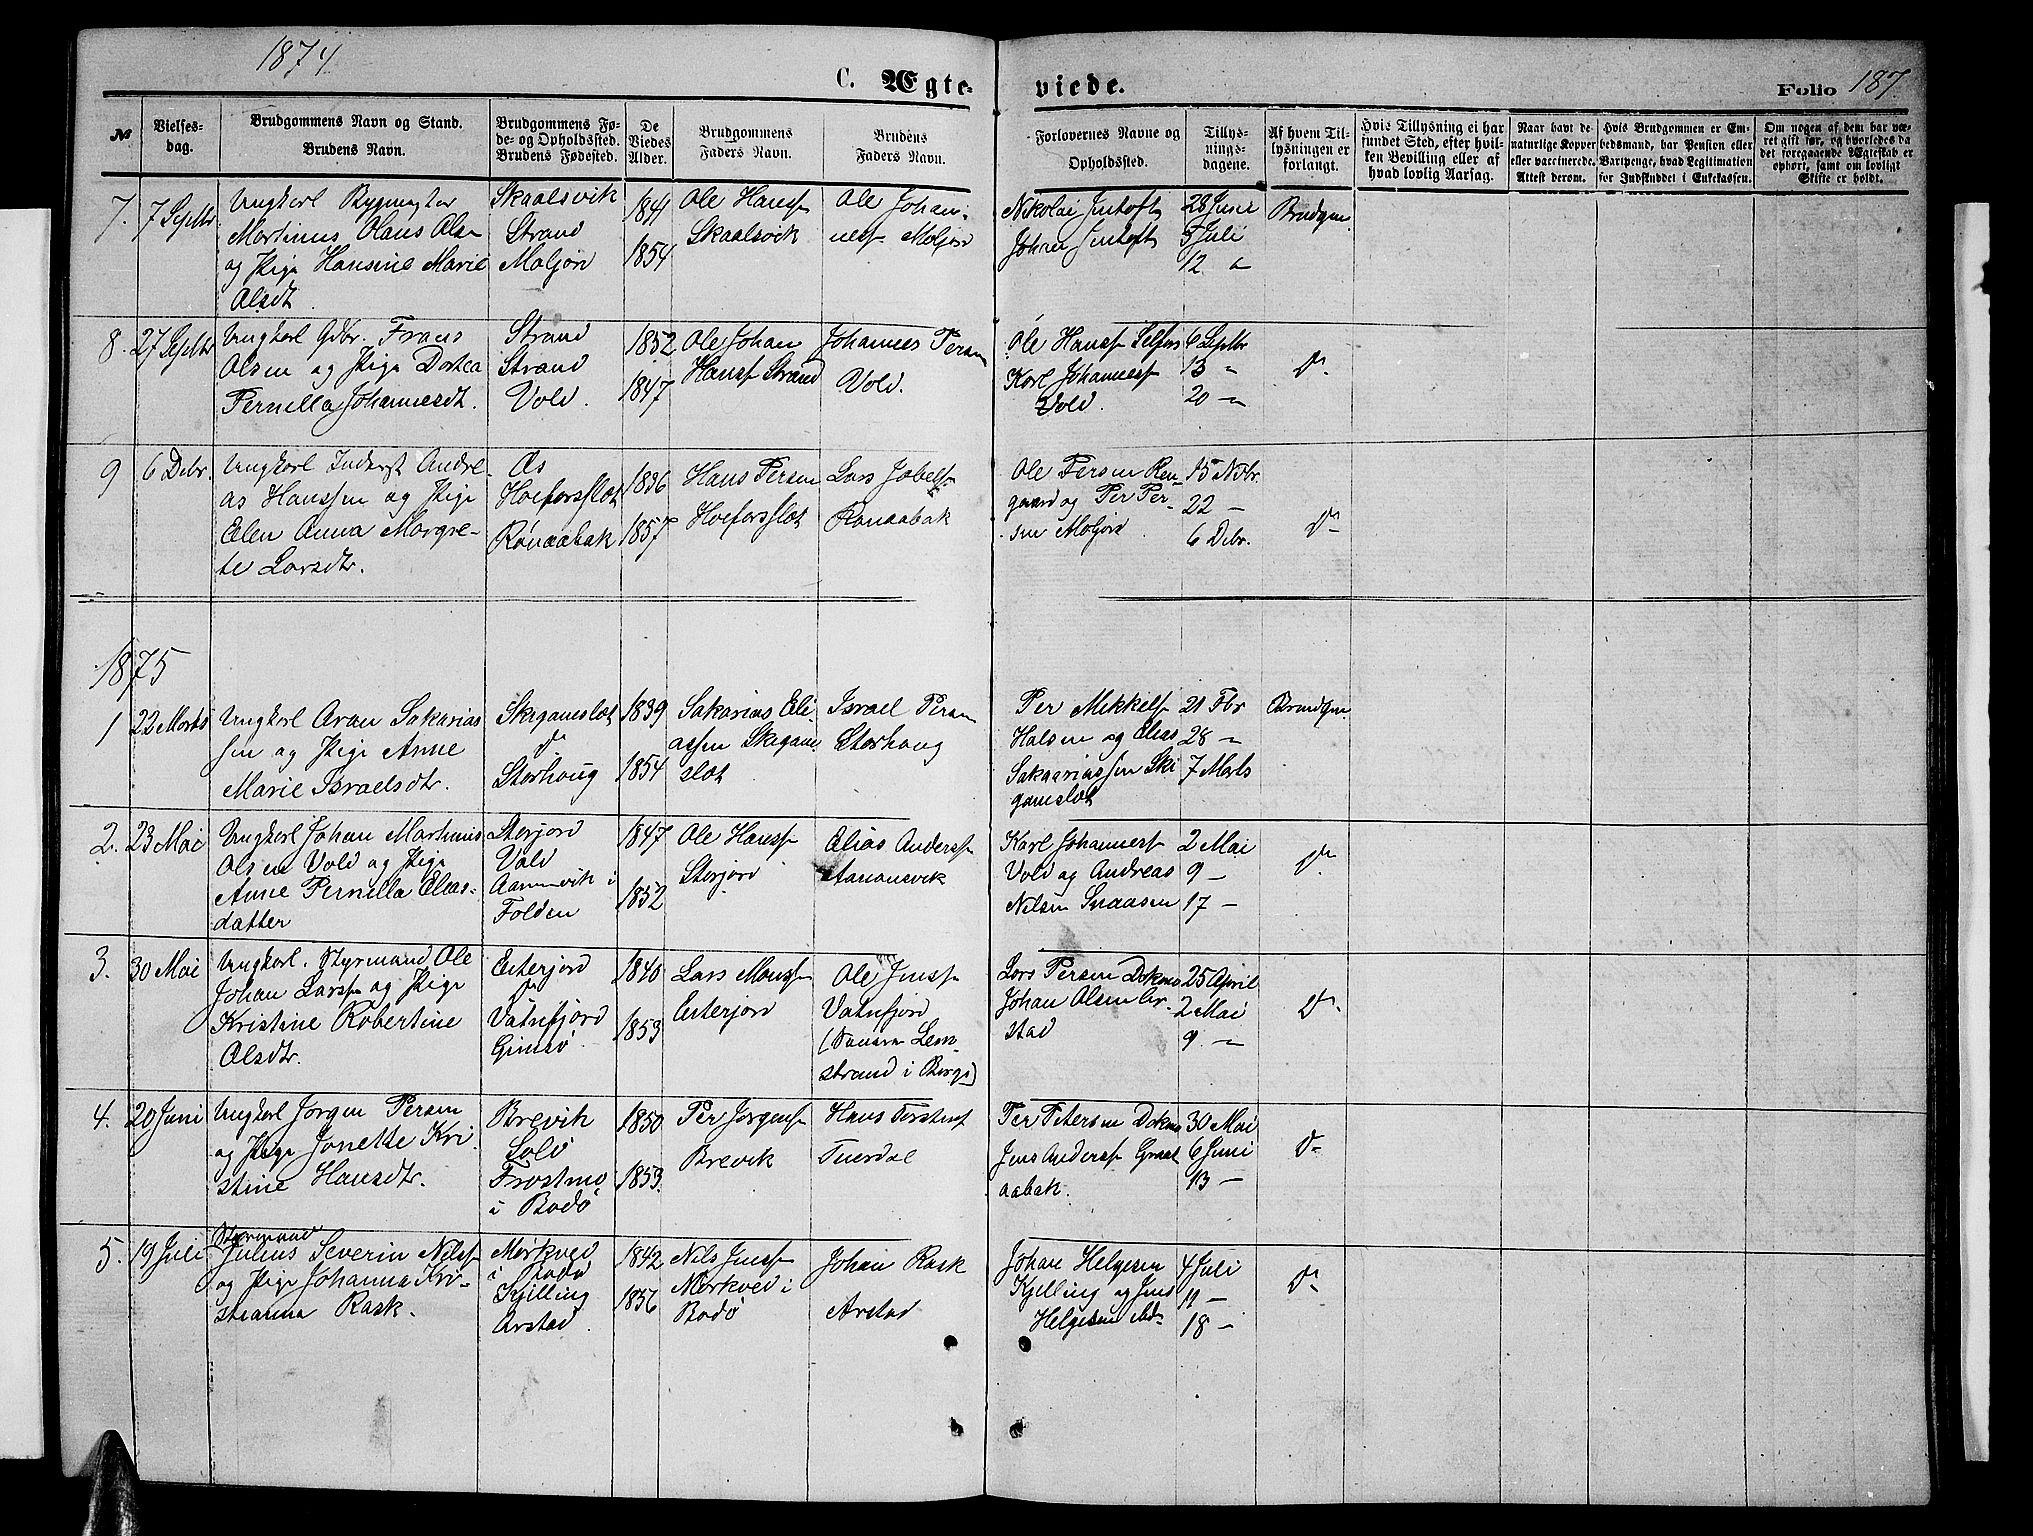 1874
C. Ægte-
viede.
Folio 187
№
Vielses-
dag.
Brudgommens Navn og Stand.
Brudens Navn.
Brudgommens Fø-
de- og Opholdssted.
Brudens Fødested.
De
Viedes
Alder.
Brudgommens
Faders Navn.
Brudens
Faders Navn.
Forlovernes Navne og
Opholdssted.
Tillys-
nings-
dagene.
Af hvem Til-
lysningen er
forlangt.
Hvis Tillysning ei har
fundet Sted, efter hvil-
ken Bevilling eller af
hvad lovlig Aarsag.
Naar havt de
naturlige Kopper
eller vaccinerede.
Attest derom.
Hvis Brudgommen er Em-
bedsmand, har Pension eller
Vartpenge, hvad Legitimation
for Indskuddet i Enkekassen.
Om nogen af dem har væ-
ret gift før, og hvorledes da
det foregaaende Ægteskab er
ophørt, samt om lovligt
Skifte er holdt.
7. 7 Septbr
Ungkarl Bygmester
Martinus Olaus Olsn
og Pige Hansine Marie
Olsdt.
Skaalsvik
Strand
Moljord
1841
1854
Ole Hanss
Skaalsvik
Ole Johan-
ness Moljord
Nikolai Jentoft
Johan Jentoft
28 Juni
5 Juli
12 "
Brudgm
8. 27 Septbr
Ungkarl Gdbr. Frans
Olsen og Pige Dortea
Pernella Johannesdt.
Strand
Strand
Vold.
1852
1847
Ole Johan
Hanss Strand
Johannes Persen
Vold.
Ole Hanss Selfors
Karl Johanness
Vold.
6 Septbr
13 "
20 "
Do
9 6 Debr.
Ungkarl Inderst Andre-
as Hanssen og Pige
Elen Anna Margre-
te Larsdtr.
Æs
Hoeforsslæt
Rønaabak
1836
1857
Hans Persen
Hoeforsslæt
Lars Jobels
Rønaabak
Ole Persen Ren-
gaard og Per Per-
sen Moljord
15 Nvbr.
22 -
6 Debr.
Do
1875
1 22 Marts
Ungkarl Aron Sakarias
sen og Pige Anne
Marie Israelsdtr.
Skeganeslæt
Do
Storhoug
1839
1854
Sakarias Eli
assen Skegane
slæt
Israel Persen
Storhoug
Per Mikkels
Halsen og Elias
Sakariassen Ski
ganeslæt
21 Fbr
28 "
7 Marts
Brudgm
2. 23 Mai
Ungkarl Johan Martinus
Olsen Vold og Pige
Anne Pernella Elias-
datter
Storjord
Vold
Aamnvik i
Folden
1847
1852
Ole Hanss
Storjord
Elias Anderss
Karl Johanness
Vold og Andreas
Nilsen Snaasen
2 Mai
9 -
17 -
Do
3. 30 Mai
Ungkarl. Styrmand Ole
Johan Larss og Pige
Kristine Robertine
Olsdtr.
Esterjord
Do
Vatnfjord
Gimsø.
1840
1853
Lars Monss
Esterjord
Ole Jenss
Vatnfjord
strand i Borge)
Lars Persen Dokmo
Johan Olsen Ar-
stad
25 April
2 Mai
9 "
Do
4. 20 Juni
Ungkarl Jørgen Persen
og Pige Jonette Kri
stine Hansdtr.
Brevik
Frostmo
i Bodø
1850
1853.
Per Jørgenss
Brevik
Hans Torstens
Tuerdal
Per Petersen Dokmo
Jens Anderss Graat
aabak.
30 Mai
6 Juni
13 -
Do
5. 19 Juli
Styrmand
Julius Severin Nilss
og Pige Johanna Kri-
stianna Rask.
Mørkved
i Bodø
Kjelling
Arstad.
1842
1856
Nils Jenss
Mørkved i
Bodø
Johan Rask
Arstad
Johan Helgesen
Kjelling og Jens
Helgesen ibd-
4 Juli
11 -
18 -
Do